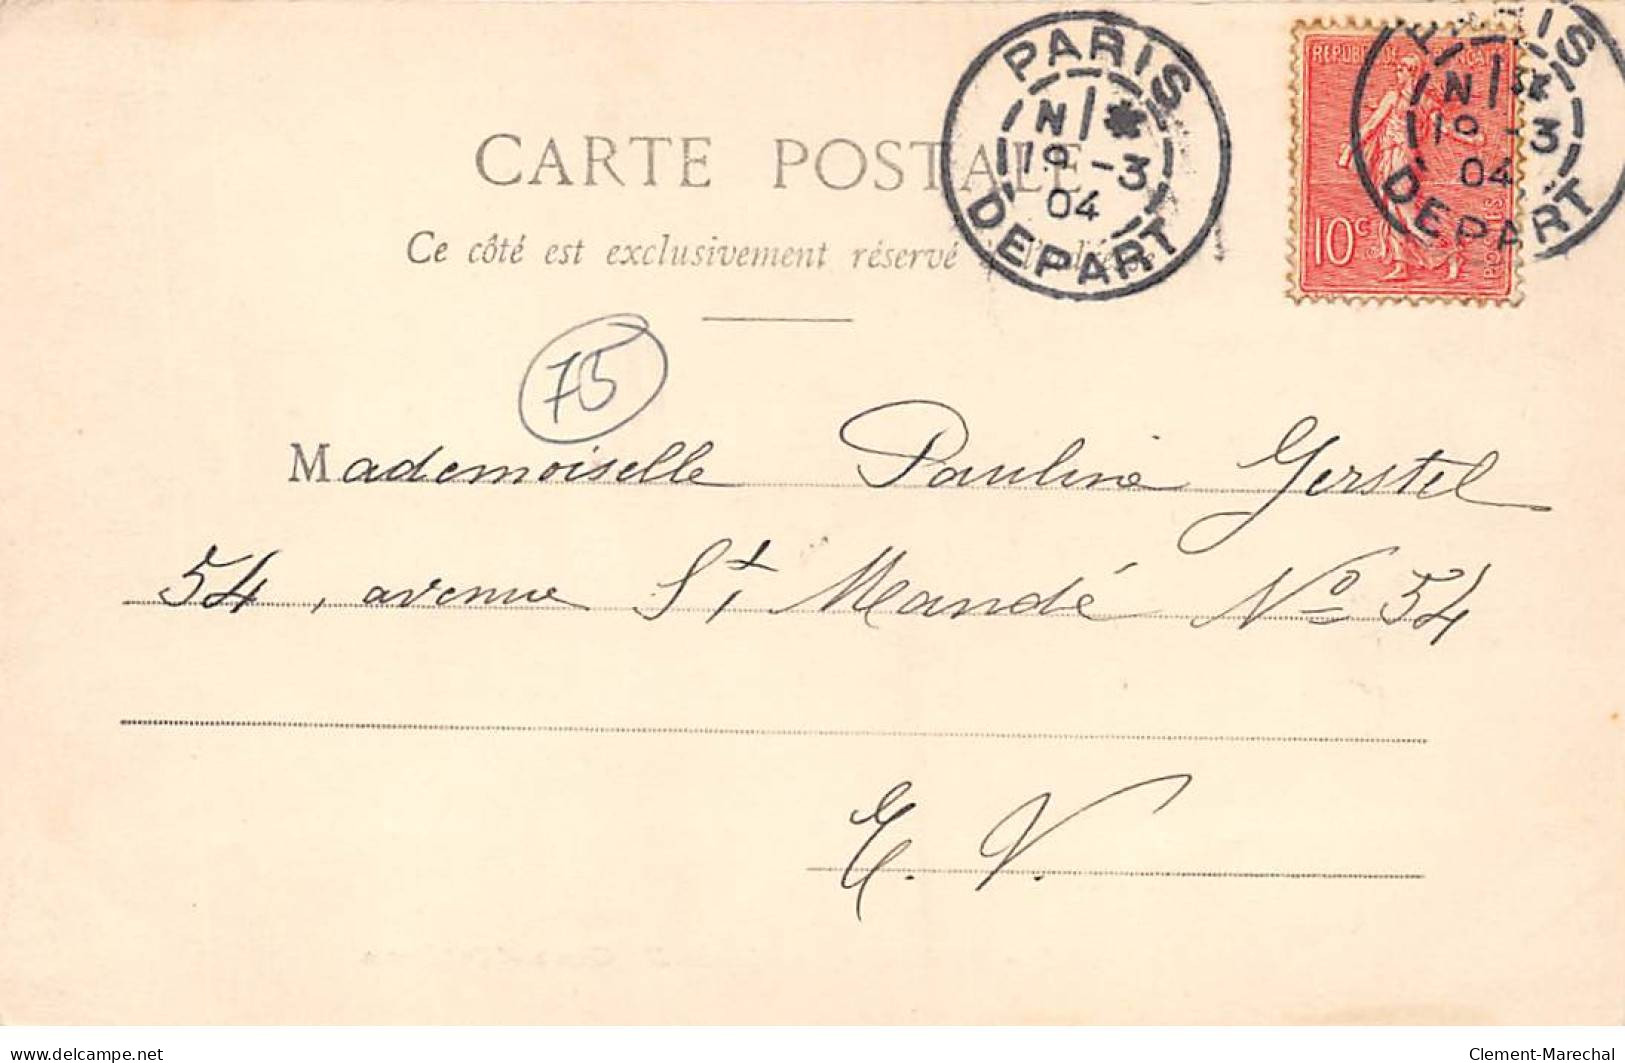 CARTE POSTALE
Ce côté est exclusivement réservé
PARIS
N
-3
04
DEPART
PARIS
N
-3
04
DEPART
10c
75
Mademoiselle Pauline Gerstel
54, avenue St Mandé No 54
E. V.
www.delcampe.net
Clement-Marechal